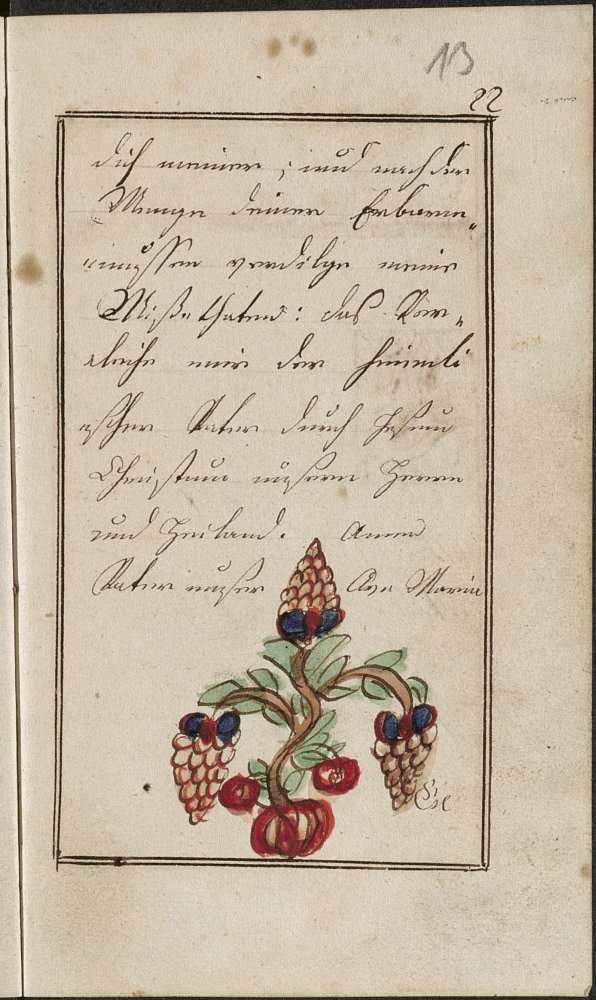 13
22
dich meiner, und nach der
Menge deiner Erbarm„
„nussen verdilge meine
Misse thaten: das Ver„
„leihe mir der himmli
„scher Vater durch Jesum
Christum unsern Herrn
und Heiland. Amen
Vater unser Ave Maria